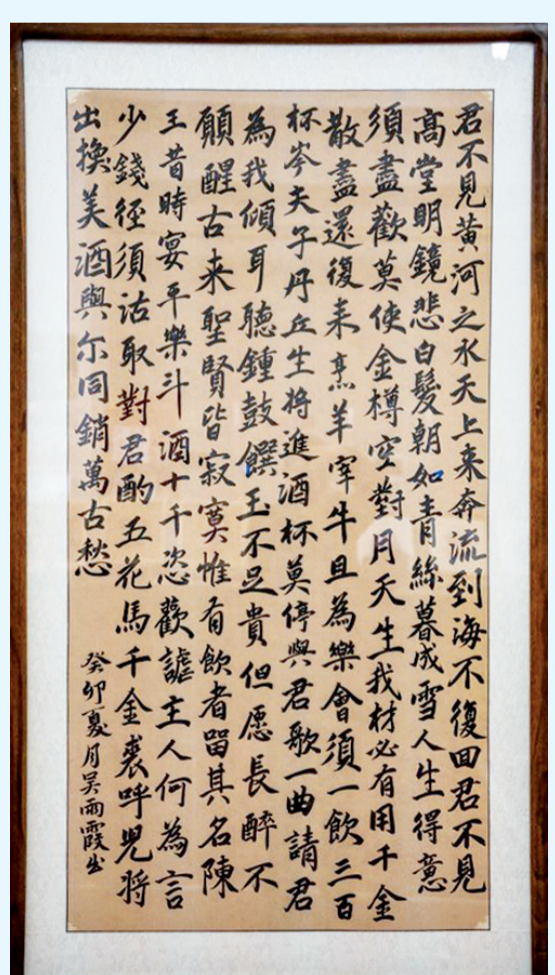 君不見黄河之水天上来奔流到海不復回君不見
高堂明鏡悲白髮朝如青絲暮成雪人生得意
須盡歡莫使金樽空對月天生我材必有用千金
散盡還復来烹羊宰牛且為樂會須一飲三百
杯岑夫子丹丘生将進酒杯莫停與君歌一曲請君
為我傾耳聽鍾鼓饌玉不足貴但愿長醉不
願醒古来聖賢皆寂寞惟有飲者留其名陳
王昔時宴平樂斗酒十千恣歡謔主人何為言
少錢徑須沽取對君酌五花馬千金裘呼兒将
出換美酒與尔同銷萬古愁
癸卯夏月吴雨霞书